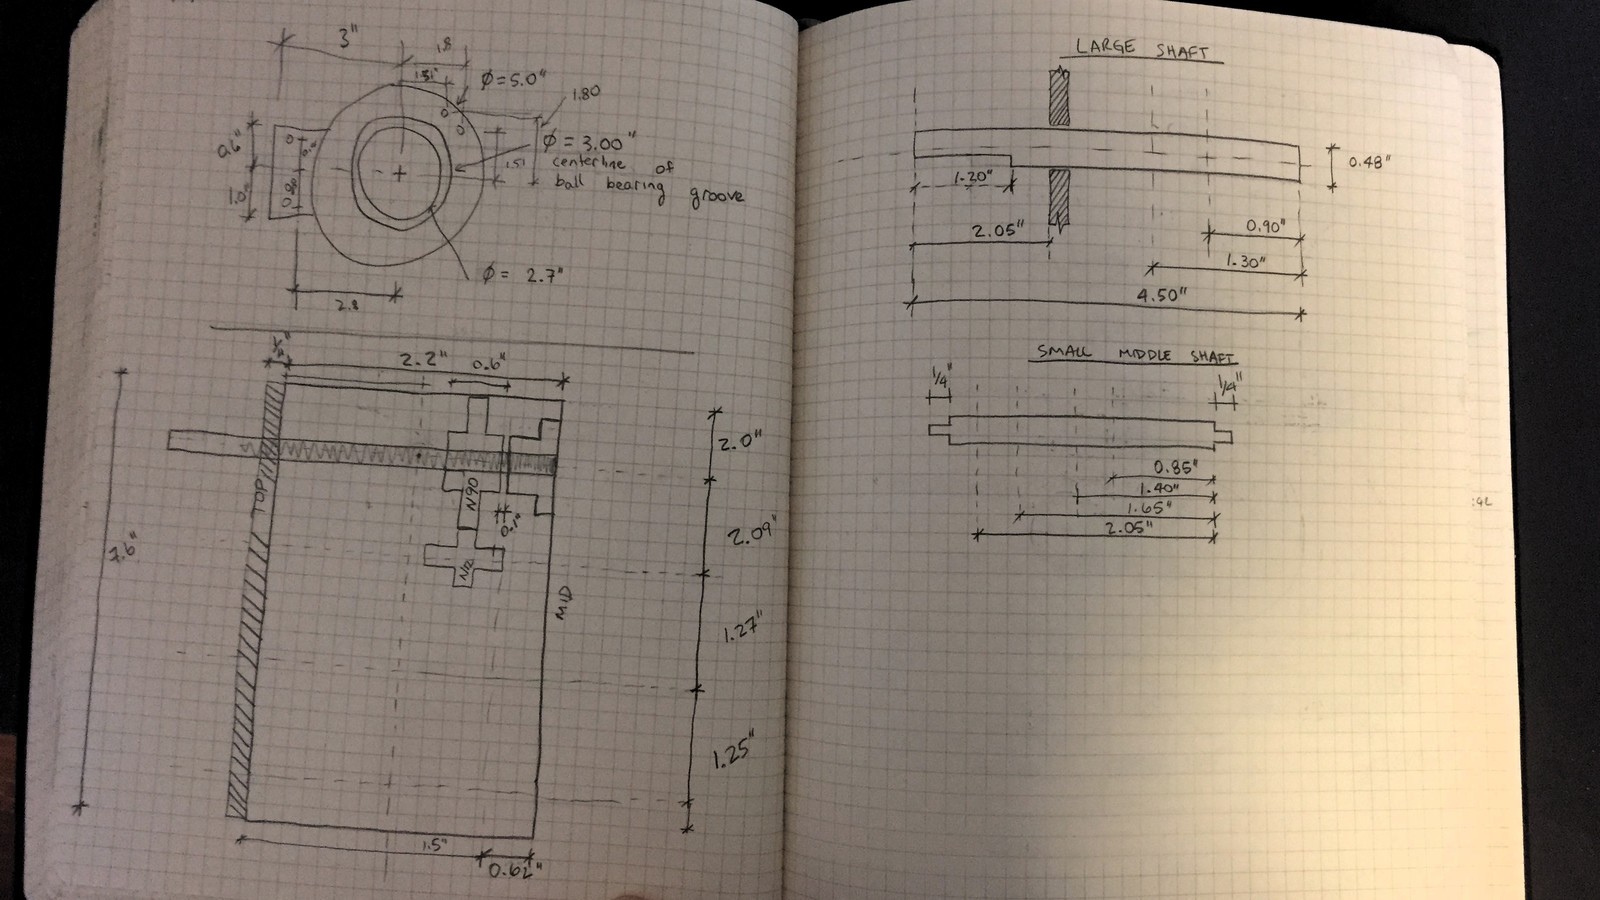 3"
1.8
1.51"
Ø=5.0"
1.80
0.6"
1.0"
0.80
Ø = 3.00"
centerline of
ball bearing groove
1.51
Ø = 2.7"
2.8
1/4"
2.2"
0.6"
7.6"
TOP
N90
N12
0.1"
MID
2.0"
2.09"
1.27"
1.25"
1.5"
0.62"
LARGE SHAFT
0.48"
1.20"
2.05"
0.90"
1.30"
4.50"
SMALL MIDDLE SHAFT
1/4"
1/4"
0.85"
1.40"
1.65"
2.05"